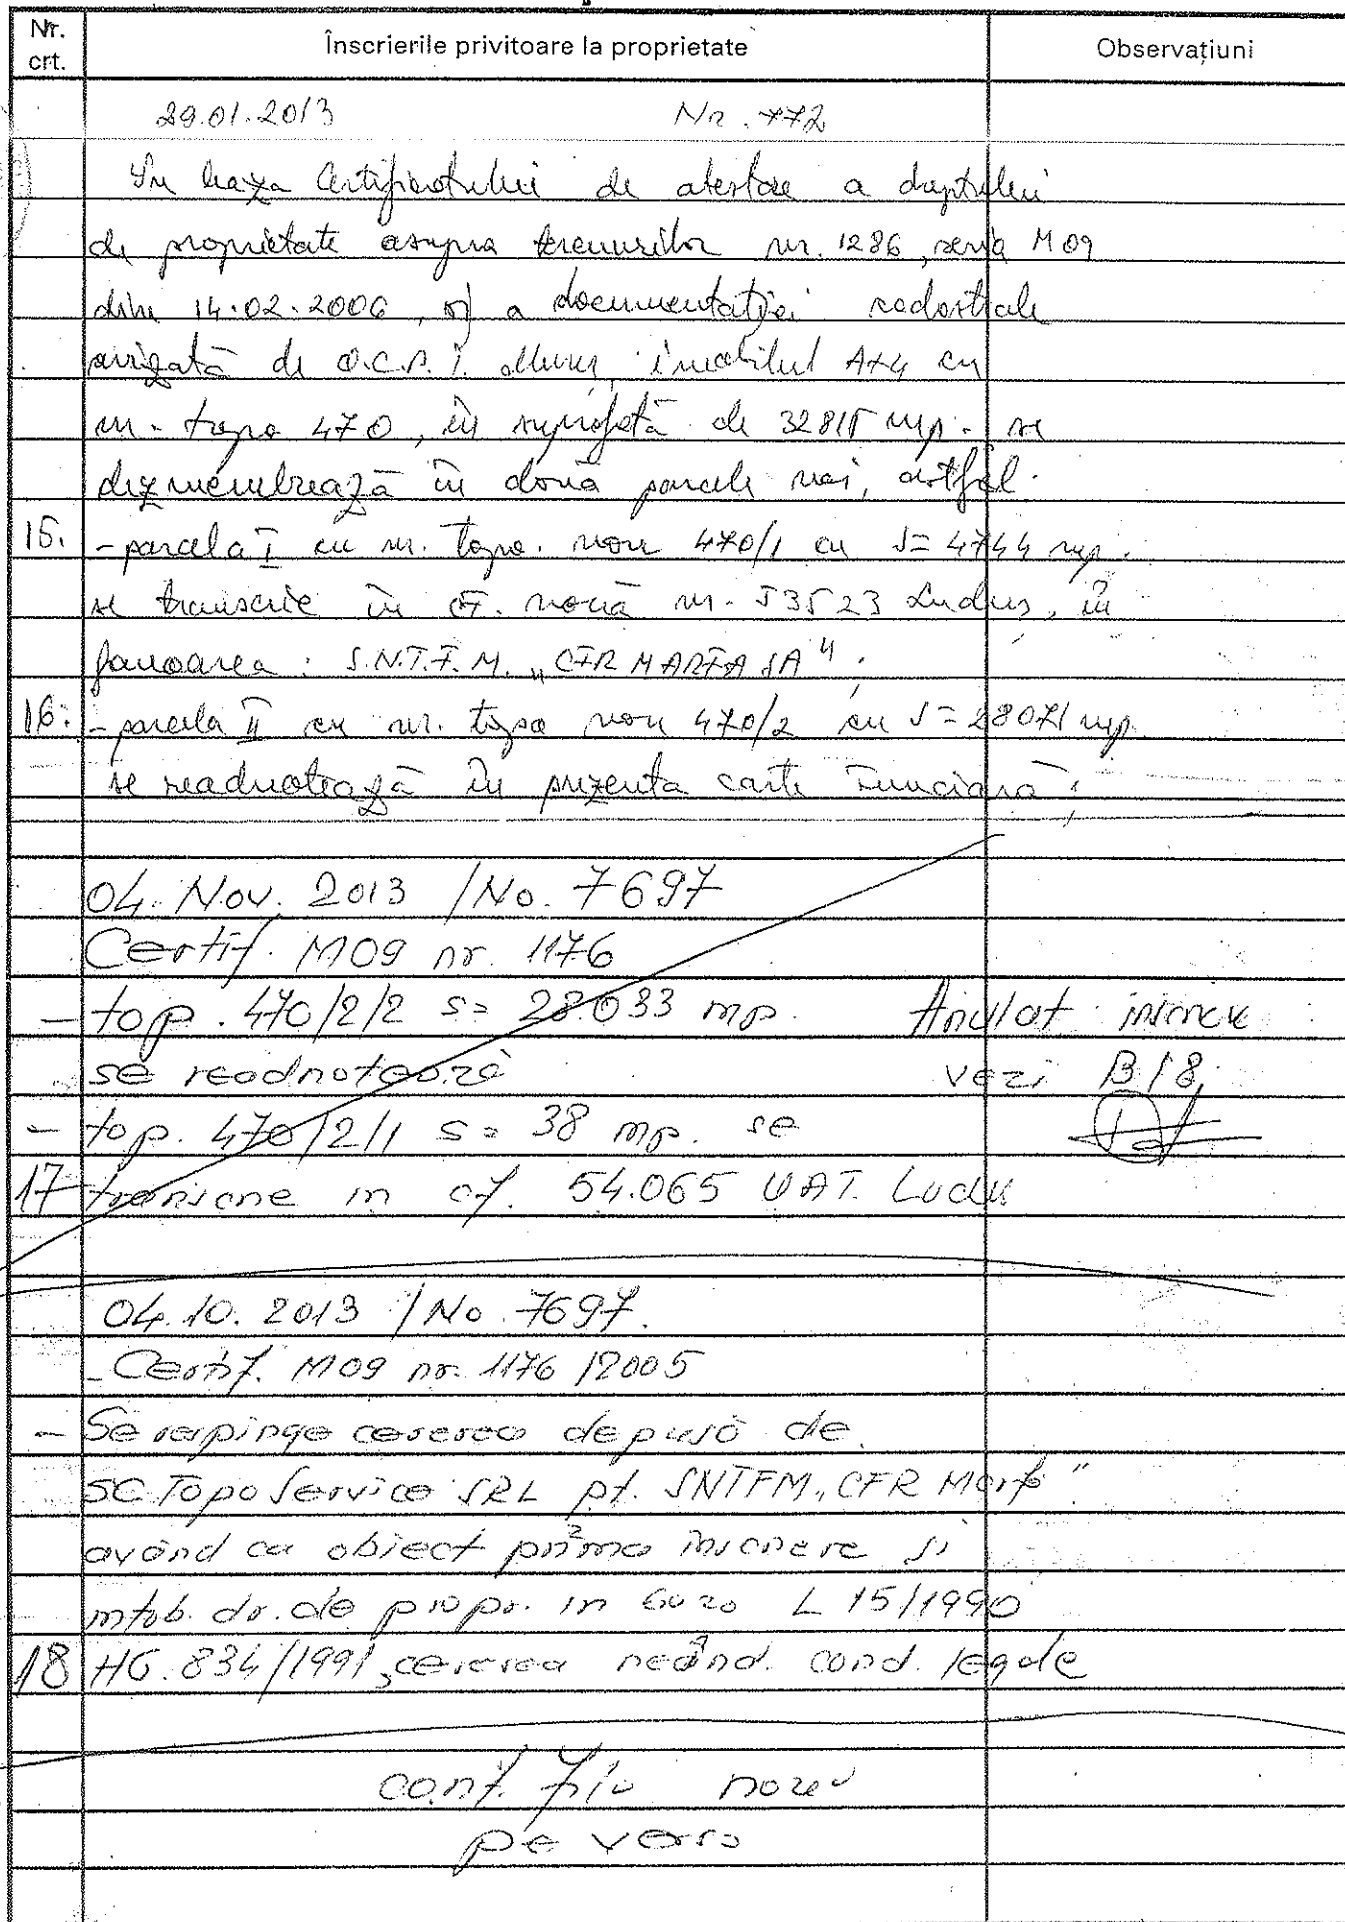 Nr. crt. Înscrierile privitoare la proprietate Observațiuni
29.01.2013 Nr. 772
În baza Certificatului de atestare a dreptului
de proprietate asupra terenurilor nr. 1286, seria M09
din 14.02.2006, și a documentației cadastrale
avizată de O.C.P.I. Mureș, imobilul A+4 cu
nr. topo 470, în suprafață de 32815 mp. se
dezmembrează în două parcele noi, astfel:
15. - parcela I cu nr. topo. nou 470/1 cu S=4744 mp.
se transcrie în CF. nouă nr. 53523 Luduș, în
favoarea: S.N.T.F.M. „CFR MARFA SA";
16. - parcela II cu nr. topo nou 470/2 cu S=28071 mp.
se readnotează în prezenta carte Funciară;
04. Nov. 2013 / No. 7697
Certif. M09 nr. 1176
- top. 470/2/2 s= 28.033 mp. Anulat
se readnotează vezi B18
- top. 470/2/1 s= 38 mp. se
17 transcrie in cf. 54.065 UAT. Luduș
04.10.2013 / No. 7697.
- Certif. M09 nr. 1176/2005
- Se respinge cererea depusă de
SC Topo Service SRL pt. SNTFM „CFR Marfă"
având ca obiect prima înscriere și
intab. dr. de propr. in baza L 15/1990
18 HG. 834/1991, cererea cond. legale
cont. fiu
pe verso